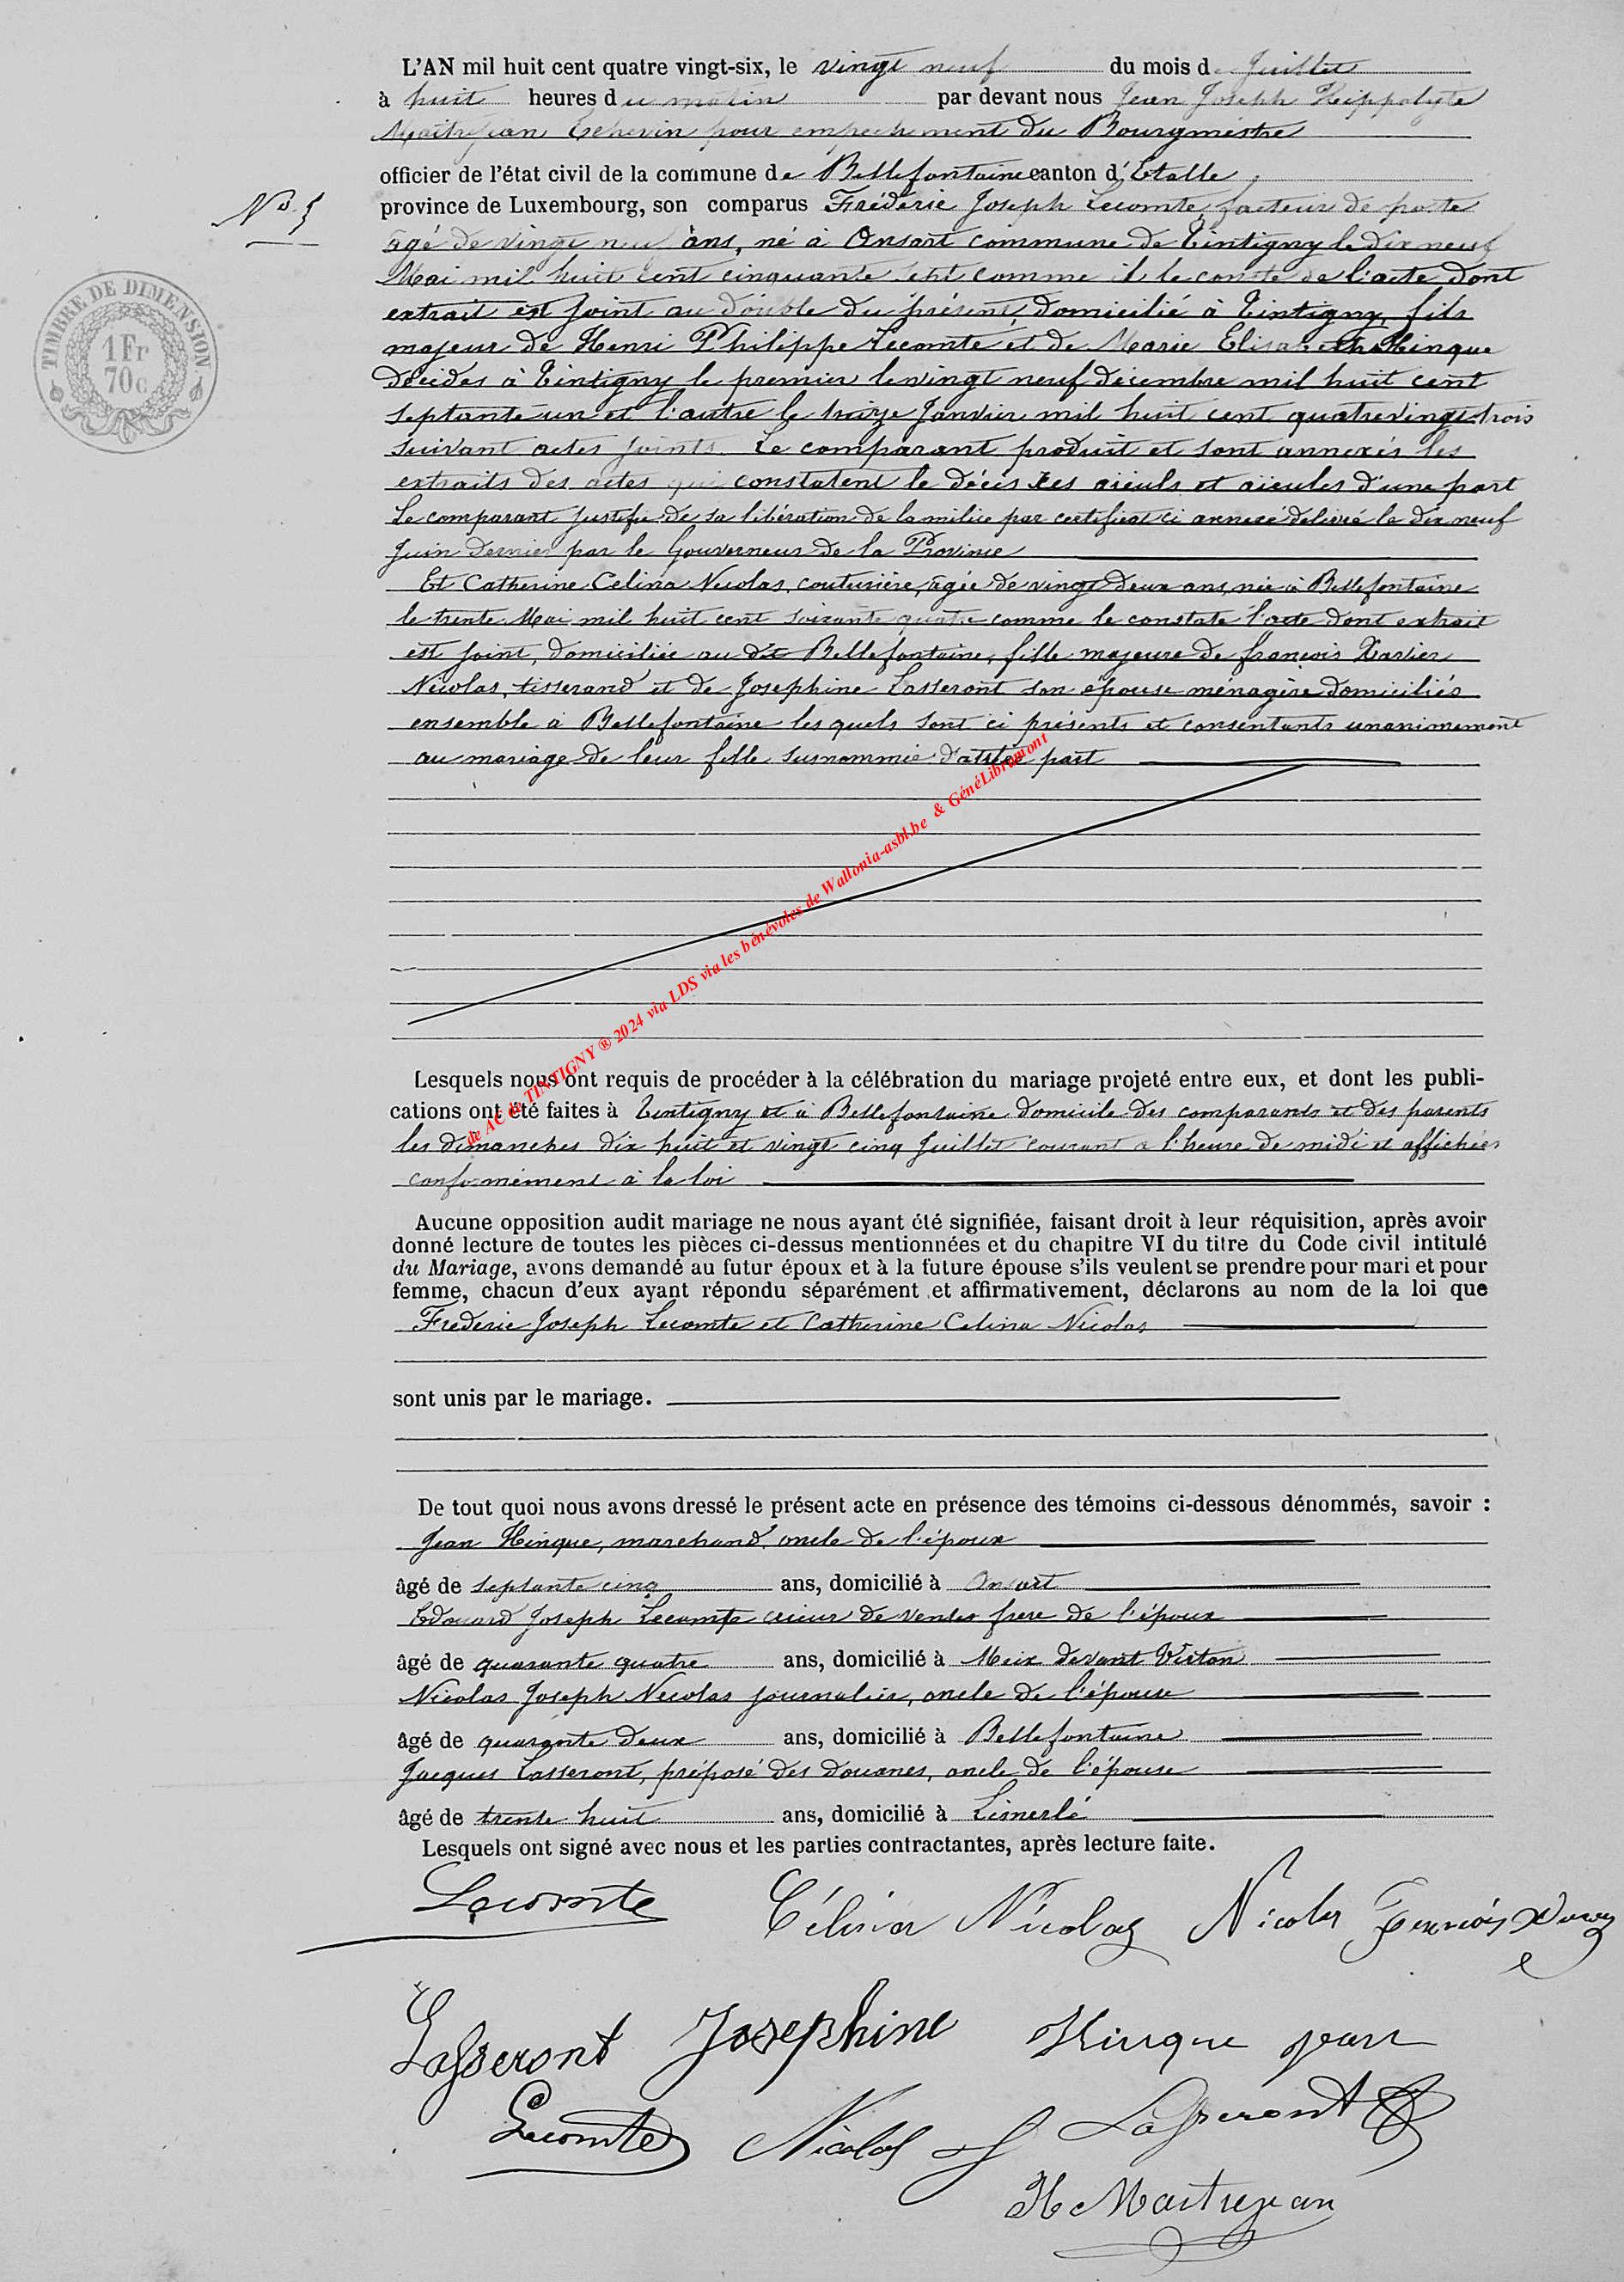 L'AN mil huit cent quatre vingt-six, le vingt neuf du mois de Juillet
à huit heures du matin par devant nous Jean Joseph Hippolyte
Maitrejean Echevin pour empechement du Bourgmestre
officier de l'état civil de la commune de Bellefontaine canton d'Etalle
N° 5
province de Luxembourg, son comparus Fréderic Joseph Lecomte, facteur de poste
âgé de vingt neuf ans, né à Ansart commune de Tintigny le dix neuf
Mai mil huit cent cinquante sept comme il le conste de l'acte dont
extrait est joint au double du présent, domicilié à Tintigny, fils
majeur de Henri Philippe Lecomte et de Marie Elisabeth Hinque
décédés à Tintigny le premier le vingt neuf décembre mil huit cent
septante-un et l'autre le treize Janvier mil huit cent quatrevingt-trois
suivant actes joints. Le comparant produit et sont annexés les
extraits des actes qui constatent le décès des aïeuls et aïeules d'une part
Le comparant justifie de sa libération de la milice par certificat ci annexé délivré le dix neuf
Juin dernier par le Gouverneur de la Province
Et Catherine Celina Nicolas, couturière, âgée de vingt deux ans, née à Bellefontaine
le trente Mai mil huit cent soixante quatre comme le constate l'acte dont extrait
est joint, domiciliée au dit Bellefontaine, fille majeure de françois Xavier
Nicolas, tisserand et de Josephine Lasseront son épouse ménagère domiciliés
ensemble à Bellefontaine les quels sont ci présents et consentants unanimement
au mariage de leur fille susnommée d'autre part
TIMBRE DE DIMENSION
1 Fr
70 c
de AC de TINTIGNY ® 2024 via LDS via les bénévoles de Wallonia-asbl.be & GénéLibramont
Lesquels nous ont requis de procéder à la célébration du mariage projeté entre eux, et dont les publi-
cations ont été faites à Tintigny et à Bellefontaine domicile des comparants et des parents
les dimanches dix huit et vingt cinq Juillet courant à l'heure de midi et affichées
conformément à la loi
Aucune opposition audit mariage ne nous ayant été signifiée, faisant droit à leur réquisition, après avoir
donné lecture de toutes les pièces ci-dessus mentionnées et du chapitre VI du titre du Code civil intitulé
du Mariage, avons demandé au futur époux et à la future épouse s'ils veulent se prendre pour mari et pour
femme, chacun d'eux ayant répondu séparément et affirmativement, déclarons au nom de la loi que
Frederic Joseph Lecomte et Catherine Celina Nicolas
sont unis par le mariage.
De tout quoi nous avons dressé le présent acte en présence des témoins ci-dessous dénommés, savoir :
Jean Hinque, marchand, oncle de l'époux
âgé de septante cinq ans, domicilié à Ansart
Edouard Joseph Lecomte crieur de ventes frere de l'époux
âgé de quarante quatre ans, domicilié à Meix devant Virton
Nicolas Joseph Nicolas journalier, oncle de l'épouse
âgé de quarante deux ans, domicilié à Bellefontaine
Jacques Lasseront, préposé des douanes, oncle de l'épouse
âgé de trente huit ans, domicilié à Limerlé
Lesquels ont signé avec nous et les parties contractantes, après lecture faite.
Lecomte Célina Nicolas Nicolas François
Lasseront Josephine Hinque Jean
Lecomte Nicolas Lasseront
H Maitrejean